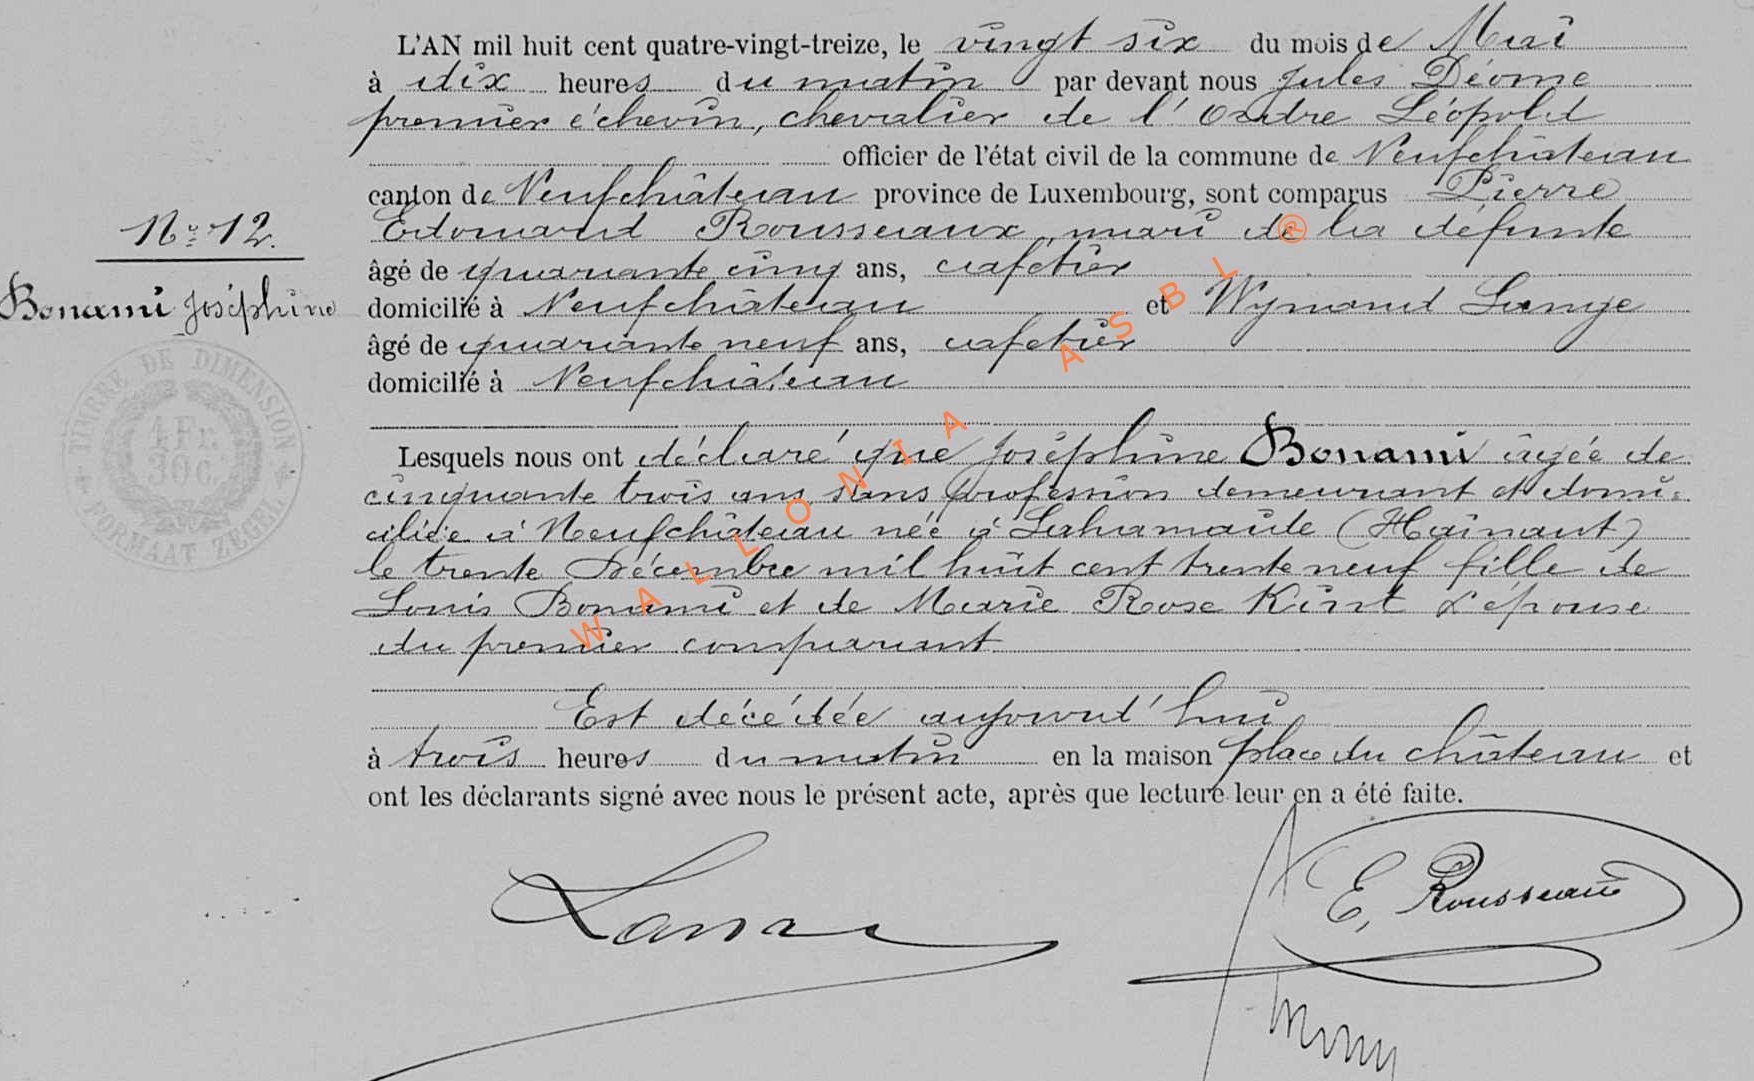 L'AN mil huit cent quatre-vingt-treize, le vingt six du mois de Mai
à dix heures du matin par devant nous Jules Déome
premier échevin, chevalier de l'Ordre Léopold
officier de l'état civil de la commune de Neufchâteau
canton de Neufchâteau province de Luxembourg, sont comparus Pierre
Edouard Rousseaux, mari de la défunte
âgé de quarante cinq ans, cafetier
domicilié à Neufchâteau et Wynand Lange
âgé de quarante neuf ans, cafetier
domicilié à Neufchâteau
No 12.
Bonami Joséphine
TIMBRE DE DIMENSION
1 Fr.
30 c.
FORMAAT ZEGEL
Lesquels nous ont déclaré que Joséphine Bonami âgée de
cinquante trois ans sans profession demeurant et domi-
ciliée à Neufchâteau née à Lahamaide (Hainaut)
le trente Décembre mil huit cent trente neuf fille de
Louis Bonami et de Marie Rose Kint L'épouse
du premier comparant.
Est décédée aujourd'hui
à trois heures du matin en la maison place du château et
ont les déclarants signé avec nous le présent acte, après que lecture leur en a été faite.
E. Rousseaux
WALLONIA ASBL ®